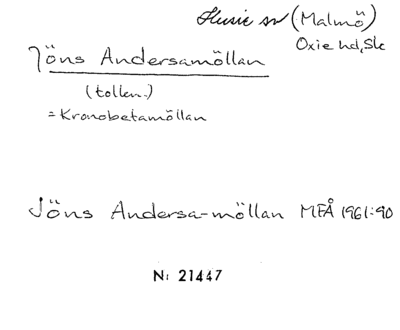 Husie sn (Malmö)
Oxie hd, Sk
Jöns Andersamöllan
(tollen.)
= Kronobetamöllan
Jöns Andersa-möllan MFÅ 1961:90
N: 21447